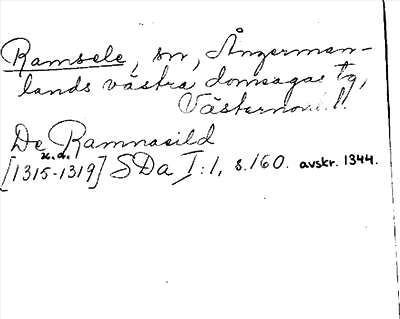 Ramsele, sn, Ångerman-
lands västra domsagas tg,
Västernorrl. l.
De Ramnasild
[1315-1319] SDa I:1, s.160. avskr. 1344.